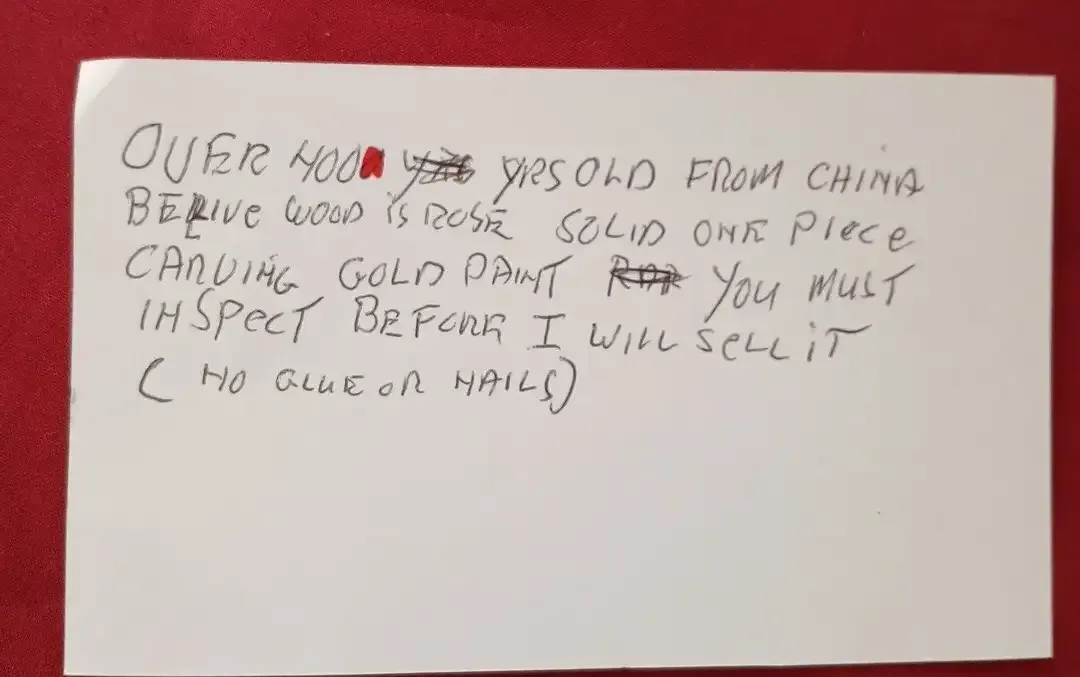 OVER 400 YRS OLD FROM CHINA
BELIVE WOOD IS ROSE SOLID ONE PIECE
CARVING GOLD PAINT YOU MUST
INSPECT BEFORE I WILL SELL IT
( NO GLUE OR NAILS)